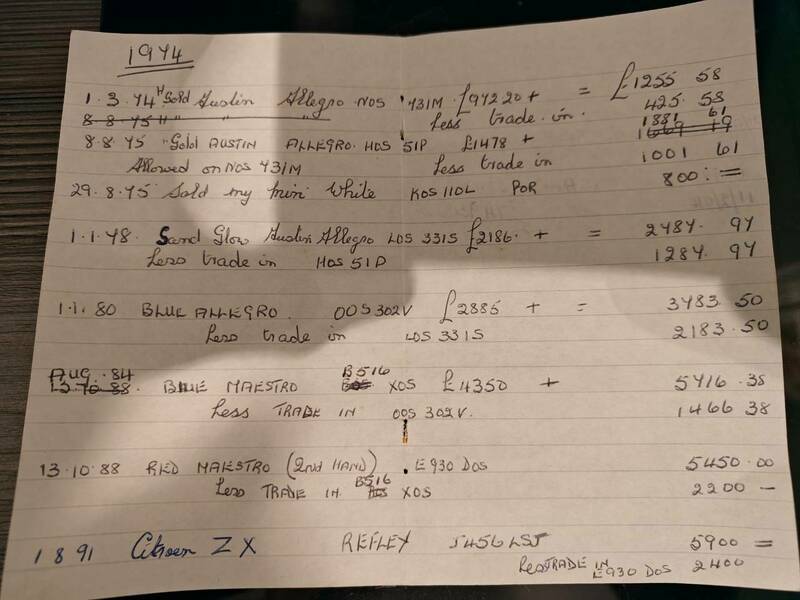 1974
1.3.74 "Gold Austin Allegro NOS 431M. £972 20 + = £1255 58
8-8-75 " " " Less trade in. 425.58
8.8.75 "Gold AUSTIN ALLEGRO. HOS 51P £1478 + 1881 61
Allowed on NOS 431M Less trade in 1001 61
29.8.75 Sold my mini White KOS 110L POR 800: =
1.1.78. Sand Glow Austin Allegro LOS 331S £2186. + = 2787.97
Less trade in HOS 51P 1287.97
1.1.80 BLUE ALLEGRO. OOS 302V £2885 + = 3483.50
Less trade in LOS 331S 2183.50
AUG. 84
13.10.88. BLUE MAESTRO B516 XOS £4350 + 5416.38
Less TRADE IN OOS 302V. 1466 38
13.10.88 RED MAESTRO (2nd HAND). E930 DOS 5450.00
Less TRADE IN. B516 XOS 2200 -
1 8 91 Citroen ZX REFLEX J456 LSJ 5900 =
Less TRADE IN E930 DOS 2400